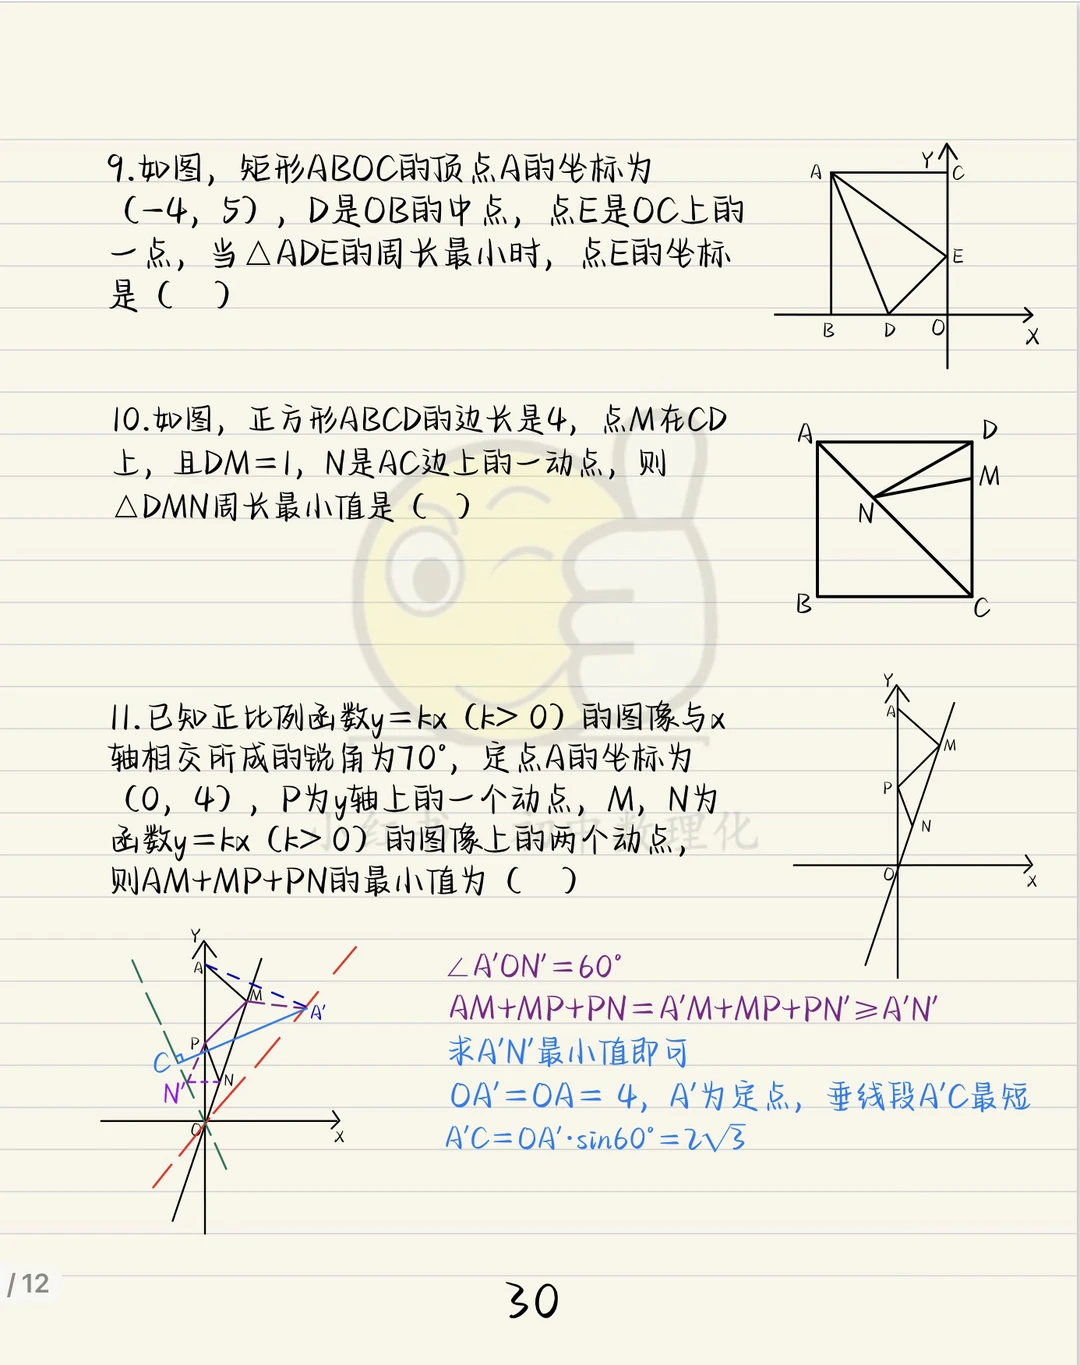 9.如图，矩形ABOC的顶点A的坐标为
（-4，5），D是OB的中点，点E是OC上的
一点，当△ADE的周长最小时，点E的坐标
是（ ）
A
Y
C
E
B
D
O
X
10.如图，正方形ABCD的边长是4，点M在CD
上，且DM=1，N是AC边上的一动点，则
△DMN周长最小值是（ ）
A
D
M
N
B
C
11.已知正比例函数y=kx（k>0）的图像与x
轴相交所成的锐角为70°，定点A的坐标为
（0，4），P为y轴上的一个动点，M，N为
函数y=kx（k>0）的图像上的两个动点，
则AM+MP+PN的最小值为（ ）
Y
A
M
P
N
O
X
小红书 初中数理化
Y
A
M
A'
P
C
N'
N
O
X
∠A'ON'=60°
AM+MP+PN=A'M+MP+PN'≥A'N'
求A'N'最小值即可
OA'=OA=4，A'为定点，垂线段A'C最短
A'C=OA'·sin60°=2√3
/12
30